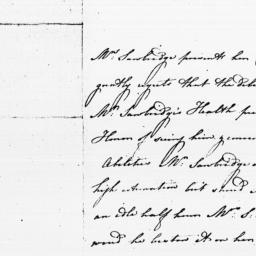 Mrs. Sawbridge presents her
greatly regrets that the
Mr. Sawbridge's Health
Honor of seeing him
Abilities Mr. Sawbridge
high estimation but
an idle half hour Mrs. S.
would he bestow it on her